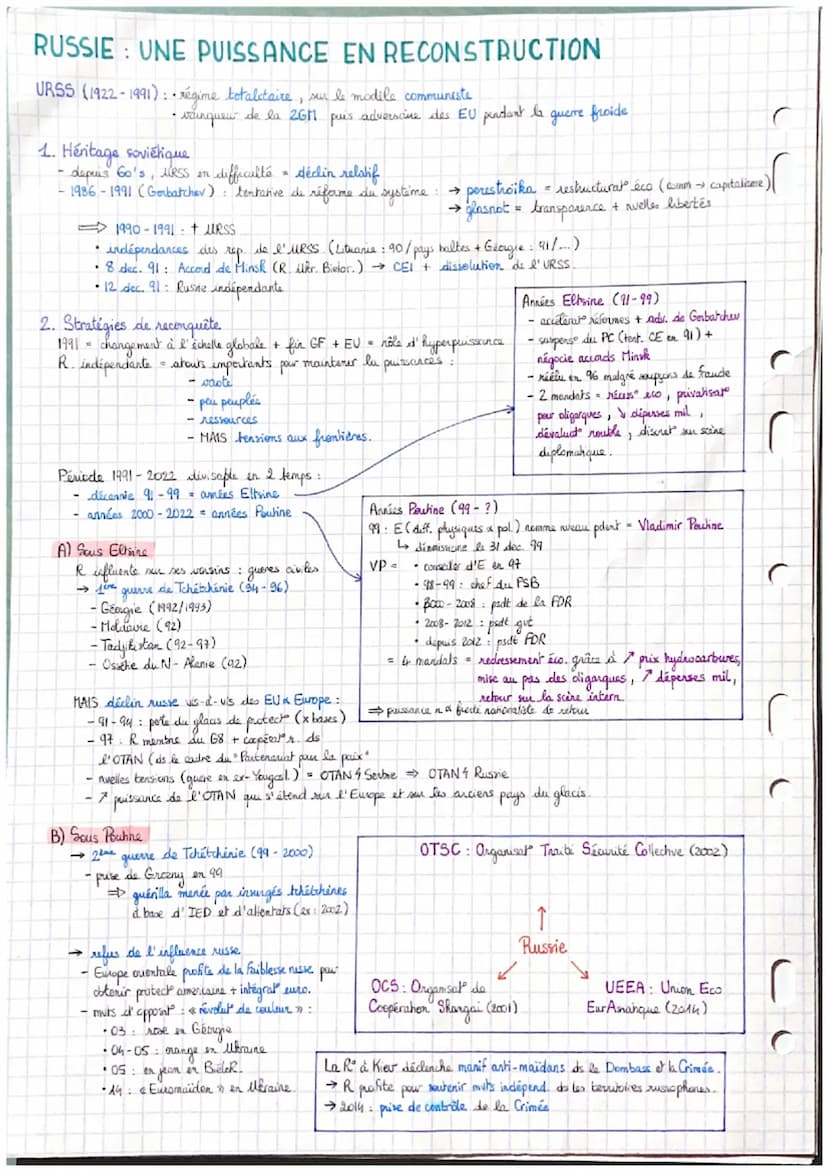 RUSSIE : UNE PUISSANCE EN RECONSTRUCTION
URSS (1922 - 1991) : • régime totalitaire, sur le modèle communiste
• vainqueur de la 2GM puis adversaire des EU pendant la guerre froide
1. Héritage soviétique
- depuis 60's, URSS en difficulté = déclin relatif
- 1986 - 1991 (Gorbatchev) : tentative de réforme du système : → perestroïka = restructurat° éco (comm → capitalisme)
→ glasnot = transparence + nvelles libertés
⇒ 1990 - 1991 : † URSS
• indépendances des rep. de l'URSS (Lituanie : 90 / pays baltes + Géorgie : 91 /...)
• 8 dec. 91 : Accord de Minsk (R. Ukr. Bielor.) → CEI + dissolution de l'URSS.
• 12 dec. 91 : Russie indépendante
2. Stratégies de reconquête
1991 = changement à l'échelle globale + fin GF + EU = rôle d'hyperpuissance
R. indépendante = atouts importants pour maintenir la puissances :
- vaste
- peu peuplés
- ressources
- MAIS tensions aux frontières.
Années Eltsine (91-99)
- accélérat° réformes + adv. de Gorbatchev
- suspens° du PC (tent. CE en 91) +
négocie accords Minsk
- réélu en 96 malgré soupçons de fraude
- 2 mandats = récess° éco, privatisat°
pour oligarques, ↘ dépenses mil.,
dévaluat° rouble, discret sur scène
diplomatique.
Période 1991 - 2022 divisable en 2 temps :
- décennie 91 - 99 = années Eltsine
- années 2000 - 2022 = années Poutine
Années Poutine (99 - ?)
99 : E (diff. physiques & pol.) nomme nveau pdent = Vladimir Poutine
↳ démissionne le 31 dec. 99
VP = • conseiller d'E en 97
• 98-99 : chef du FSB
• 2000 - 2008 : psdt de la FDR
• 2008 - 2012 : psdt gvt
• depuis 2012 : psdt FDR
= 4 mandats = redressement éco. grâce à ↗ prix hydrocarbures,
mise au pas des oligarques, ↗ dépenses mil,
retour sur la scène intern.
⇒ puissance & fierté nationaliste de retour
A) Sous Eltsine
R influente sur ses voisins : guerres civiles
→ 1ère guerre de Tchétchénie (94 - 96)
- Géorgie (1992/1993)
- Moldavie (92)
- Tadjikistan (92-97)
- Ossétie du N - Alanie (92)
MAIS déclin russe vis-à-vis des EU & Europe :
- 91 - 94 : perte du glacis de protect° (x bases)
- 97 : R membre du G8 + coopérat° ds
l'OTAN (ds le cadre du "Partenariat pour la paix"
- nvelles tensions (guerre en ex-Yougosl.) = OTAN ↯ Serbie ⇒ OTAN ↯ Russie
- ↗ puissance de l'OTAN qui s'étend sur l'Europe et sur les anciens pays du glacis.
B) Sous Poutine
→ 2ème guerre de Tchétchénie (99 - 2000)
- prise de Grozny en 99
⇒ guérilla menée par insurgés tchétchènes
à base d'IED et d'attentats (ex : 2002)
→ refus de l'influence russe
- Europe orientale profite de la faiblesse russe pour
obtenir protect° américaine + intégrat° euro.
- mvts d'opposit° : « révolut° de couleur » :
• 03 : rose en Géorgie
• 04 - 05 : orange en Ukraine
• 05 : en jean en BiéloR.
• 14 : « Euromaïden » en Ukraine
OTSC : Organisat° Traité Sécurité Collective (2002)
Russie
OCS : Organisat° de
Coopération Shangai (2001)
UEEA : Union Eco
EurAsiatique (2014)
La R° à Kiev déclenche manif anti-maïdans ds le Dombass et la Crimée.
→ R profite pour soutenir mvts indépend. ds les territoires russophones.
→ 2014 : prise de contrôle de la Crimée